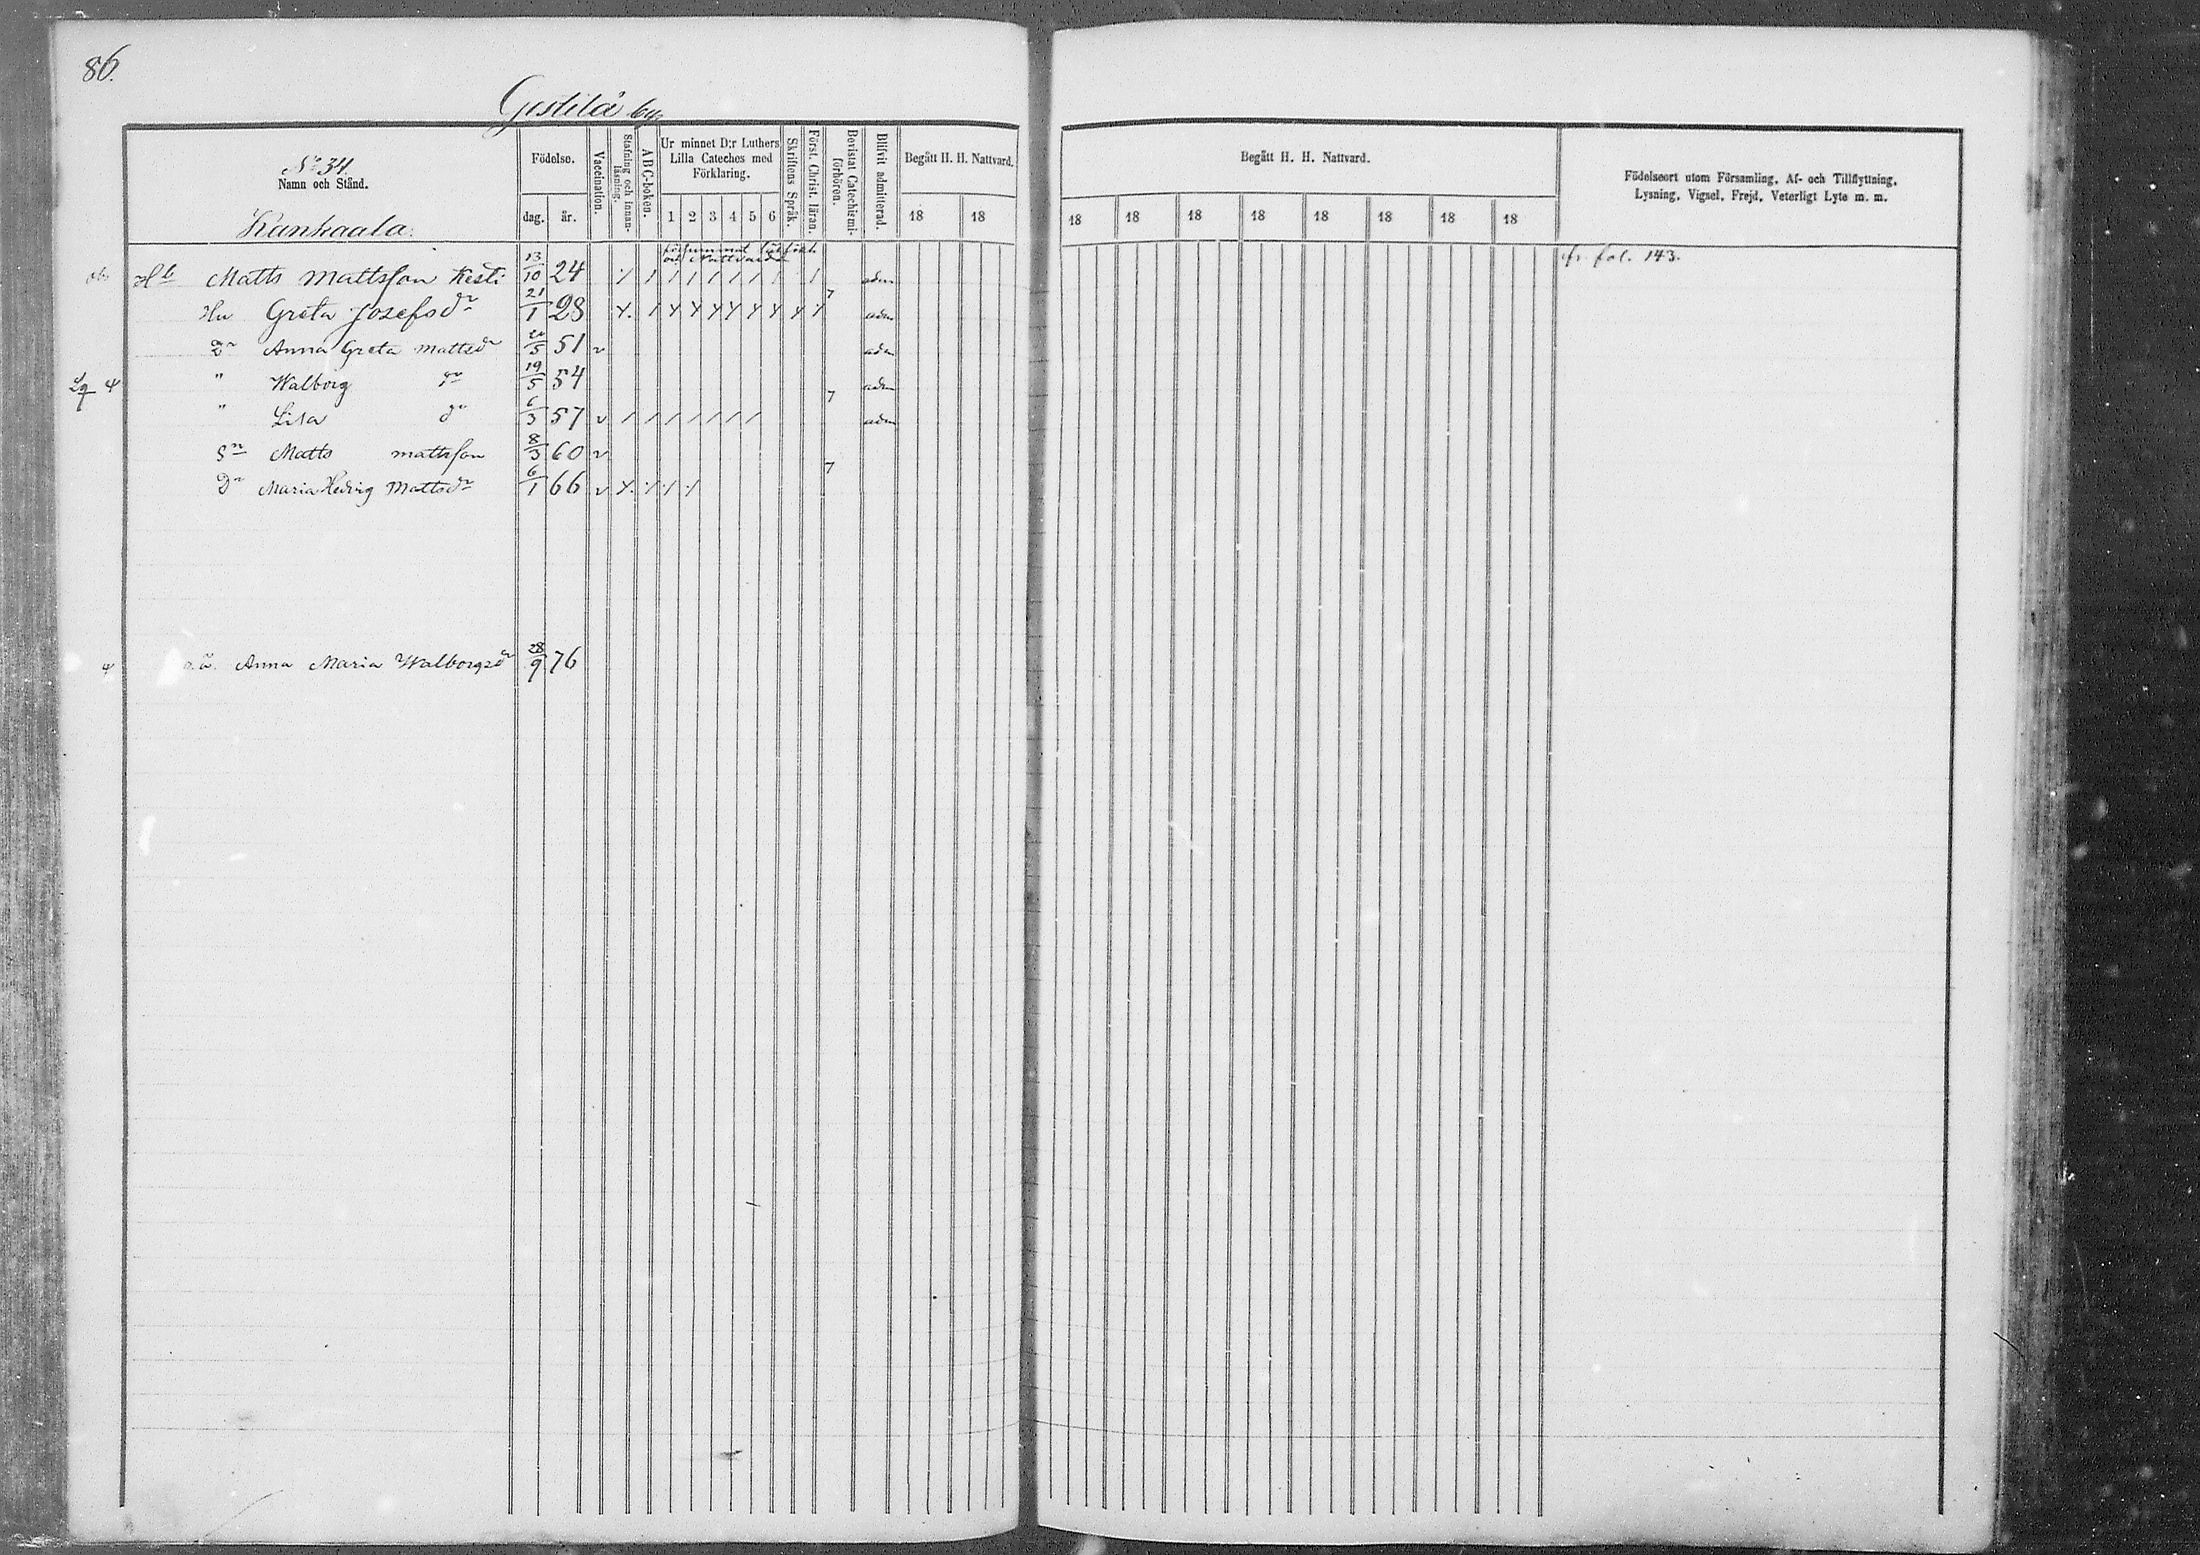 86.
Gestilä by
No 34.
Namn och Stånd.
Kankaala.
Födelse.
dag. år.
Vaccination.
Stafning och innanläsning.
ABC-boken.
Ur minnet D:r Luthers Lilla Cateches med Förklaring.
1 2 3 4 5 6
Skriftens Språk.
Först. Christ. läran.
Bevistat Catechismiförhören.
Blifvit admitterad.
Begått H. H. Nattvard.
18 18
Begått H. H. Nattvard.
18 18 18 18 18 18 18 18
Födelseort utom Församling, Af- och Tillflyttning,
Lysning, Vigsel, Frejd, Veterligt Lyte m. m.
försummat
och Nattvarden
Hb Matts Mattsson Kesti 13/10 24 adm fr. fol. 143.
Hu Greta Josefsdr 21/1 28 7 adm
Dr Anna Greta Mattsdr 20/5 51 v adm
" Walborg dr 19/5 54 adm
" Lisa dr 6/3 57 v 7 adm
Sn Matts Mattsson 8/3 60 v
Dr Maria Hedvig Mattsdr 6/1 66 v 7
o.ä. Anna Maria Walborgsdr 28/9 76